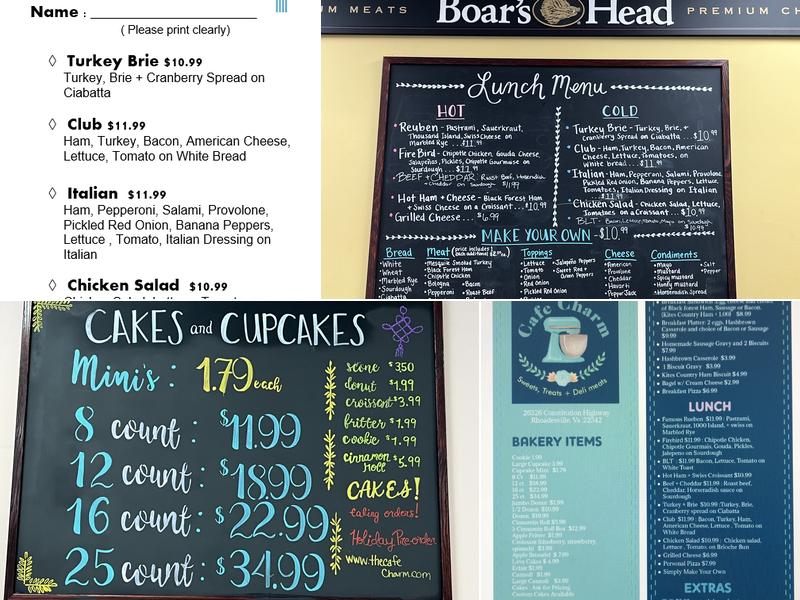 Name : ___________________________
( Please print clearly)
◊ Turkey Brie $10.99
Turkey, Brie + Cranberry Spread on
Ciabatta
◊ Club $11.99
Ham, Turkey, Bacon, American Cheese,
Lettuce, Tomato on White Bread
◊ Italian $11.99
Ham, Pepperoni, Salami, Provolone,
Pickled Red Onion, Banana Peppers,
Lettuce , Tomato, Italian Dressing on
Italian
◊ Chicken Salad $10.99
UM MEATS Boar's Head PREMIUM CH
Lunch Menu
HOT
Reuben - Pastrami, Sauerkraut,
Thousand Island, Swiss Cheese on
Marbled Rye ...$11.99
Fire Bird - Chipotle Chicken, Gouda Cheese,
Jalapeños, Pickles, Chipotle Gourmaise on
Sourdough ...$11.99
BEEF + CHEDDAR Roast Beef, Horseradish
+ Cheddar on Sourdough $11.99
Hot Ham + Cheese - Black Forest Ham
+ Swiss Cheese on a Croissant ...$10.99
Grilled Cheese ... $6.99
COLD
Turkey Brie - Turkey, Brie, +
Cranberry Spread on Ciabatta ...$10.99
Club - Ham, Turkey, Bacon, American
Cheese, Lettuce, Tomatoes, on
White bread ...$11.99
Italian - Ham, Pepperoni, Salami, Provolone
Pickled Red Onion, Banana Peppers, Lettuce,
Tomatoes, Italian Dressing on Italian
...$11.99
Chicken Salad - Chicken Salad, Lettuce,
Tomatoes on a Croissant ...$10.99
BLT - Bacon, Lettuce, Tomato, Mayo on Sourdough
$10.99
MAKE YOUR OWN - $10.99
Bread
White
Wheat
Marbled Rye
Sourdough
Ciabatta
Meat
Mesquite Smoked Turkey
Black Forest Ham
Chipotle Chicken
Bologna
Bacon
Pepperoni
Roast Beef
Toppings
Lettuce
Tomato
Onion
Red Onion
Pickled Red Onion
Jalapeño Peppers
Sweet Red +
Onion Peppers
Cheese
American
Provolone
Cheddar
Havarti
PepperJack
Condiments
Mayo
Mustard
Spicy mustard
Honey mustard
Horseradish Spread
Salt
Pepper
CAKES and CUPCAKES
Mini's : 1.79 each
8 count : $11.99
12 count : $18.99
16 count : $22.99
25 count : $34.99
scone $3.50
donut $1.99
croissant $3.99
fritter $1.99
cookie $1.99
cinnamon
roll $5.99
CAKES!
taking orders!
Holiday Pre-order
www.thecafe
Charm.com
Cafe Charm
Sweets, Treats + Deli meats
26326 Constitution Highway
Rhoadesville, Va 22542
BAKERY ITEMS
Cookie 1.99
Large Cupcake 3.99
Cupcake Mini $1.79
8 Ct $11.99
12 ct $18.99
16 ct $22.99
25 ct $34.99
Jumbo Donut $1.99
1/2 Dozen $10.99
Cinnamon Roll $5.99
Apple Fritter $1.99
Lava Cakes $ 4.99
Large Cannoli $3.99
Cakes : Ask for Pricing
Custom Cakes Available
of Black Forest Ham, Sausage or Bacon.
(Kites Country Ham + 1.00) $8.99
Breakfast Platter: 2 eggs, Hashbrown
Casserole and choice of Bacon or Sausage
$9.99
Homemade Sausage Gravy and 2 Biscuits
$7.99
Hashbrown Casserole $3.99
1 Biscuit Gravy $3.99
Kites Country Ham Biscuit $4.99
Bagel w/ Cream Cheese $2.99
Breakfast Pizza $6.99
LUNCH
Famous Rueben $11.99 : Pastrami,
Sauerkraut, 1000 Island, + swiss on
Marbled Rye
Firebird $11.99 : Chipotle Chicken,
Chipotle Gourmais, Gouda, Pickles,
Jalapeno on Sourdough
BLT $11.99 Bacon, Lettuce, Tomato on
White Toast
Hot Ham + Swiss Croissant $10.99
Beef + Cheddar $11.99 : Roast beef,
Cheddar, Horseradish sauce on
Sourdough
Turkey + Brie $10.99 :Turkey, Brie,
Cranberry spread on Ciabatta
Club $11.99 : Bacon, Turkey, Ham,
American Cheese, Lettuce , Tomato on
White Bread
Chicken Salad $10.99 : Chicken salad,
Lettuce , Tomato, on Brioche Bun
Grilled Cheese $6.99
Personal Pizza $7.99
Simply Make Your Own
EXTRAS